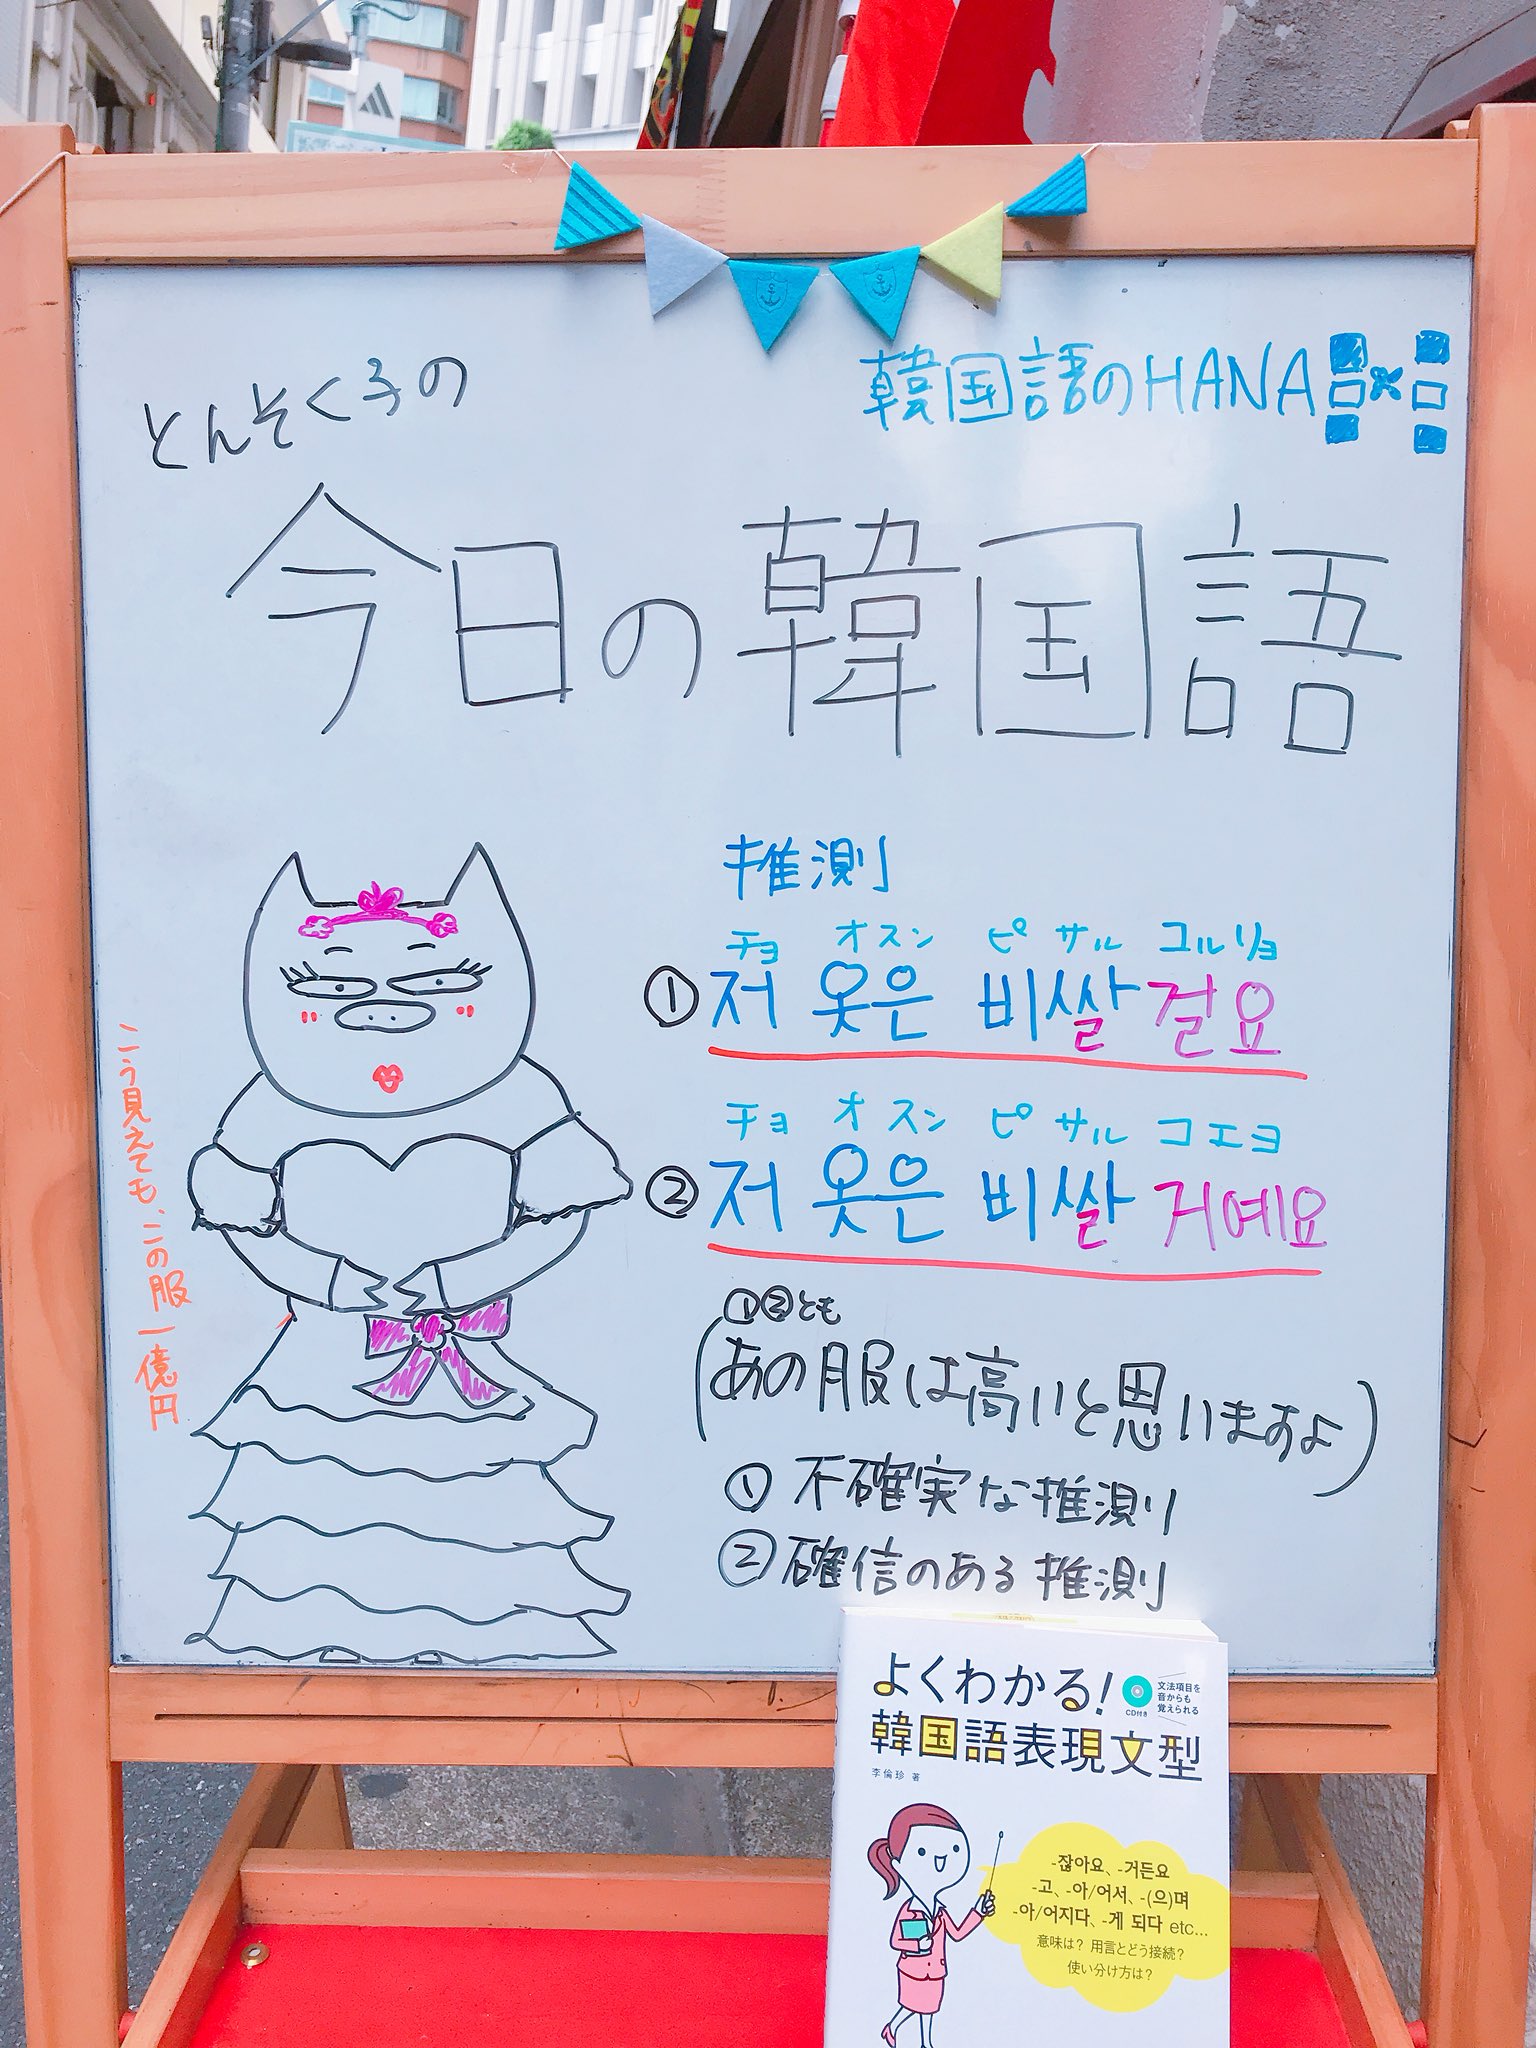 とんそく子の
韓国語のHANA
今日の韓国語
推測
チョ オスン ピ サル コルリョ
① 저 옷은 비쌀걸요
チョ オ スン ピ サル コエヨ
② 저 옷은 비쌀 거예요
①②とも
(あの服は高いと思いますよ)
① 不確実な推測
② 確信のある推測
こう見えても、この服一億円
よくわかる!
韓国語表現文型
CD付き
文法項目を
音からも
覚えられる
李倫珍 著
-잖아요、-거든요
-고、-아/어서、-(으)며
-아/어지다、-게 되다 etc...
意味は? 用言とどう接続?
使い分け方は?